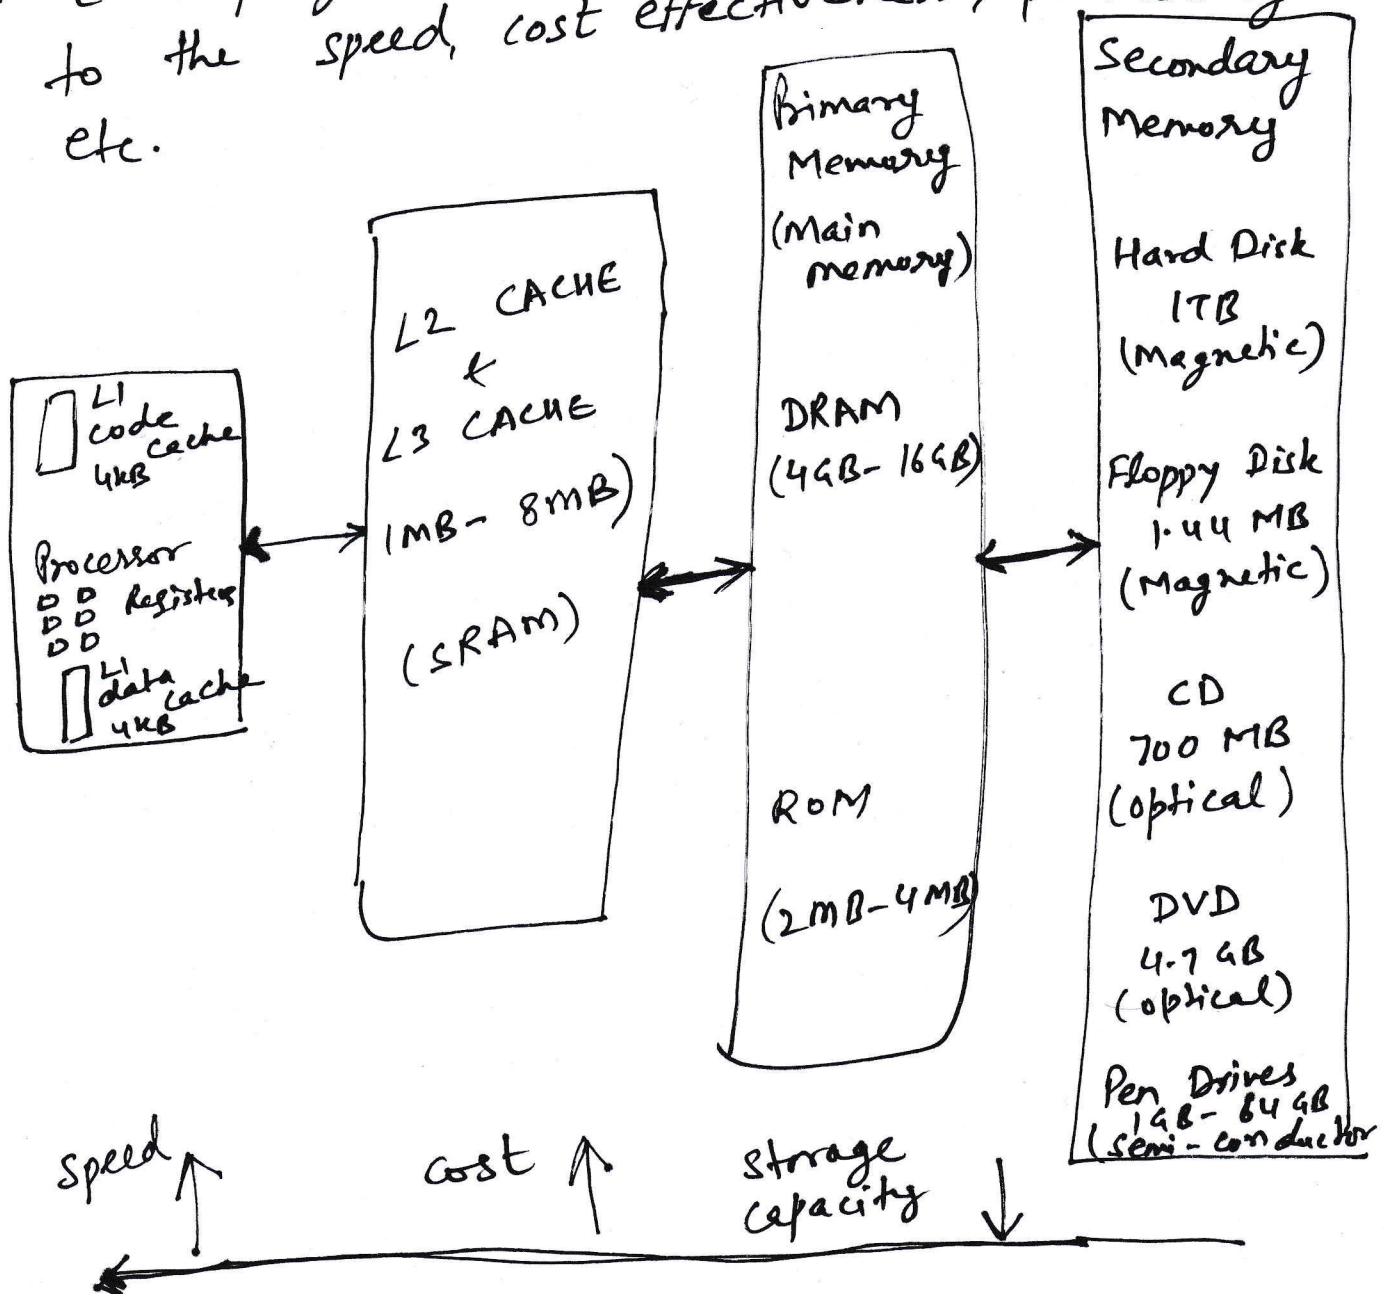 to the speed, cost effectiveness,
etc.
L1
code
cache
4KB
Processor
Registers
L1
data
cache
4KB
L2 CACHE
&
L3 CACHE
1MB - 8MB)
(SRAM)
Primary
Memory
(Main
memory)
DRAM
(4GB - 16GB)
ROM
(2MB - 4MB)
Secondary
Memory
Hard Disk
1TB
(Magnetic)
Floppy Disk
1.44 MB
(Magnetic)
CD
700 MB
(optical)
DVD
4.7 GB
(optical)
Pen Drives
1GB - 64GB
(semi-conductor
speed
cost
storage
capacity